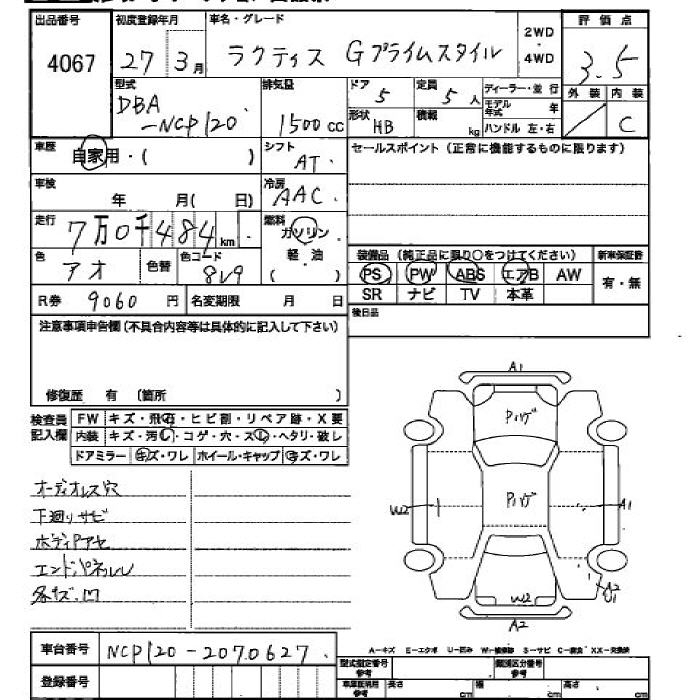 出品番号 4067
初度登録年月 27 3月
車名・グレード ラクティス Gプライムスタイル
2WD・4WD
評価点 3.5
型式 DBA-NCP120
排気量 1500cc
ドア 5
定員 5人
形状 HB
積載 kg
ディーラー・並行
モデル年式 年
ハンドル 左・右
外装 / 内装 C
車歴 自家用・( )
シフト AT
セールスポイント (正常に機能するものに限ります)
車検 年 月( 日)
冷房 AAC
走行 7万0千484km
燃料 ガソリン・軽・油 ( )
色 アオ 色替 色コード 8V9
装備品 (純正品に限り○をつけてください)
新車保証書 有・無
PS PW ABS エアB AW
SR ナビ TV 本革
R券 9060円 名変期限 月 日
後日品
注意事項申告欄(不具合内容等は具体的に記入して下さい)
修復歴 有 (箇所 )
検査員記入欄
FW キズ・飛石・ヒビ割・リペア跡・X要
内装 キズ・汚レ・コゲ・穴・スレ・ヘタリ・破レ
ドアミラー キズ・ワレ ホイール・キャップ キズ・ワレ
オーディオレス穴
下廻りサビ
ボディPアセ
エンドパネルレ
各キズ凹
A1
Pハゲ
Pハゲ
W2
A1
W2
A2
A2
車台番号 NCP120-2070627
登録番号
A-キズ E-エクボ U-凹み W-補修跡 S-サビ C-腐食 XX-交換済
型式指定番号 参考
類別区分番号 参考
車庫証明用 参考 長さ cm 幅 cm 高さ cm